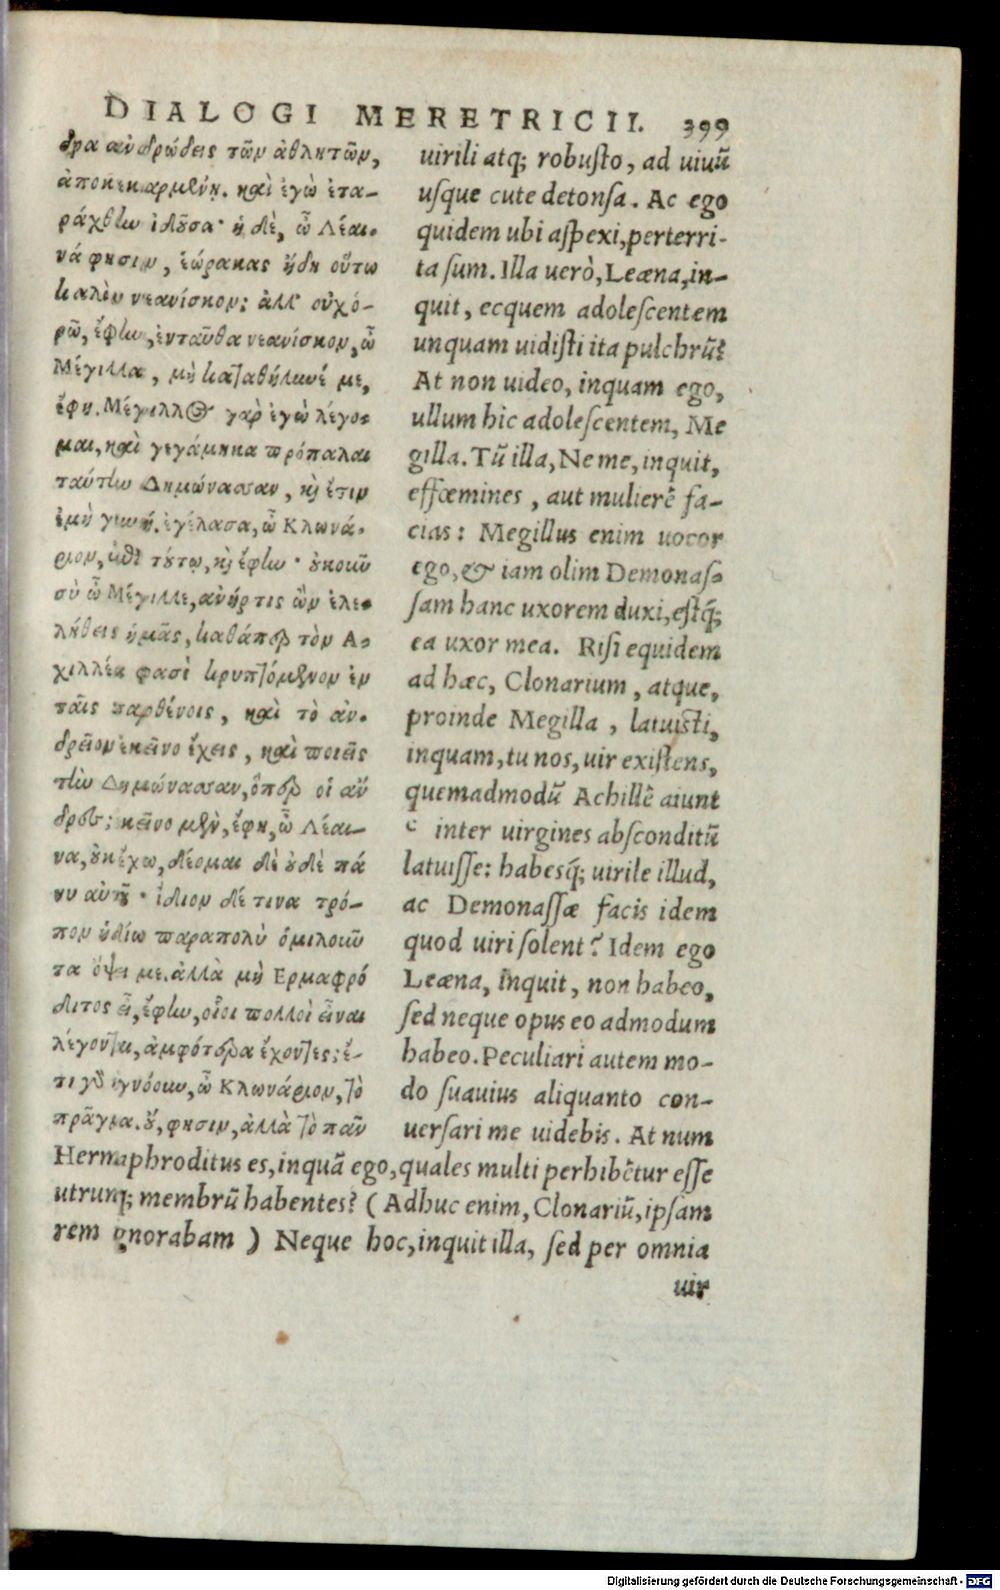 DIALOGI MERETRICII. 399
δρα ανδρώδεις τῶν ἀθλητῶν,
ἀποκεκαρμένη. καὶ ἐγὼ ἐτα-
ράχθην ἰδοῦσα· ἡ δὲ, ὦ Λέαι-
νά φησιν, ἑώρακας ἤδη οὕτω
καλὸν νεανίσκον; ἀλλ' οὐχ ὁ-
ρῶ, ἔφην, ἐνταῦθα νεανίσκον, ὦ
Μέγιλλα, μὴ καταθήλυνέ με,
ἔφη. Μέγιλλος γὰρ ἐγὼ λέγο-
μαι, καὶ γεγάμηκα πρόπαλαι
ταύτην Δημώνασσαν, καὶ ἔστιν
ἐμὴ γυνή. ἐγέλασα, ὦ Κλωνά-
ριον, ἐπὶ τούτῳ, καὶ ἔφην· οὐκοῦν
σὺ ὦ Μέγιλλε, ἀνήρ τις ὢν ἐλε-
λήθεις ἡμᾶς, καθάπερ τὸν Α-
χιλλέα φασὶ κρυπτόμενον ἐν
ταῖς παρθένοις, καὶ τὸ ἀν-
δρεῖον ἐκεῖνο ἔχεις, καὶ ποιεῖς
τὴν Δημώνασσαν, ὅπερ οἱ ἄν
δρες; κεῖνο μὲν, ἔφη, ὦ Λέαι-
να, οὐκ ἔχω, δέομαι δὲ οὐδὲ πά
νυ αὐτοῦ· ἴδιον δέ τινα τρό-
πον ἡδίω παραπολὺ ὁμιλοῦν
τα ὄψει με. ἀλλὰ μὴ Ερμαφρό
διτος εἶ, ἔφην, οἷοι πολλοὶ εἶναι
λέγονται, ἀμφότερα ἔχοντες; ἔ-
τι γὰρ ἠγνόουν, ὦ Κλωνάριον, τὸ
πρᾶγμα. οὔ, φησιν, ἀλλὰ τὸ πᾶν
uirili atq; robusto, ad uiuũ
usque cute detonsa. Ac ego
quidem ubi aspexi, perterri-
ta sum. Illa uerò, Leæna, in-
quit, ecquem adolescentem
unquam uidisti ita pulchrũ?
At non uideo, inquam ego,
ullum hic adolescentem, Me
gilla. Tũ illa, Ne me, inquit,
effœmines, aut mulierẽ fa-
cias: Megillus enim uocor
ego, & iam olim Demonas-
sam hanc uxorem duxi, estq́;
ea uxor mea. Risi equidem
ad hæc, Clonarium, atque,
proinde Megilla, latuisti,
inquam, tu nos, uir existens,
quemadmodũ Achillẽ aiunt
c inter uirgines absconditũ
latuisse: habesq́; uirile illud,
ac Demonassæ facis idem
quod uiri solent? Idem ego
Leæna, inquit, non habeo,
sed neque opus eo admodum
habeo. Peculiari autem mo-
do suauius aliquanto con-
uersari me uidebis. At num
Hermaphroditus es, inquã ego, quales multi perhibẽtur esse
utrunq; membrũ habentes? (Adhuc enim, Clonariũ, ipsam
rem ignorabam) Neque hoc, inquit illa, sed per omnia
uir
Digitalisierung gefördert durch die Deutsche Forschungsgemeinschaft - DFG